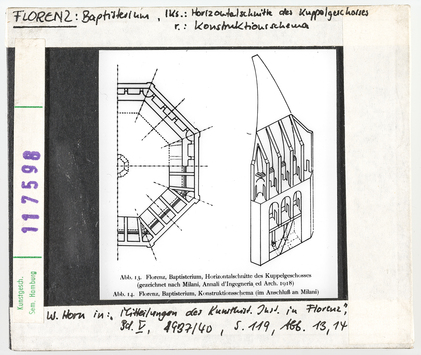 FLORENZ: Baptisterium, lks.: Horizontalschnitte des Kuppelgeschosses
r.: Konstruktionsschema
117598
Kunstgesch.
Sem. Hamburg
Abb. 13. Florenz, Baptisterium, Horizontalschnitte des Kuppelgeschosses
(gezeichnet nach Milani, Annali d'Ingegneria ed Arch. 1918)
Abb. 14. Florenz, Baptisterium, Konstruktionsschema (im Anschluß an Milani)
W. Horn in: "Mitteilungen des Kunsthist. Inst. in Florenz",
Bd. V, 1937/40, S. 119, Abb. 13, 14